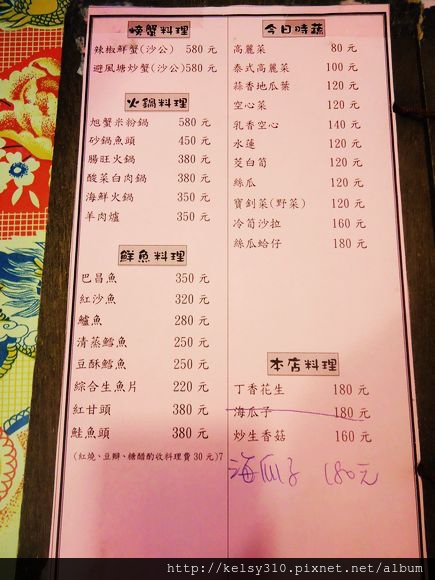 螃蟹料理
辣椒鮮蟹(沙公) 580 元
避風塘炒蟹(沙公)580 元
火鍋料理
旭蟹米粉鍋 580 元
砂鍋魚頭 450 元
腸旺火鍋 380 元
酸菜白肉鍋 380 元
海鮮火鍋 350 元
羊肉爐 350 元
鮮魚料理
巴昌魚 350 元
紅沙魚 320 元
鱸魚 280 元
清蒸鱈魚 250 元
豆酥鱈魚 250 元
綜合生魚片 220 元
紅甘頭 380 元
鮭魚頭 380 元
(紅燒、豆瓣、糖醋酌收料理費 30 元)7
今日時蔬
高麗菜 80 元
泰式高麗菜 100 元
蒜香地瓜葉 120 元
空心菜 120 元
乳香空心 140 元
水蓮 120 元
茭白筍 120 元
絲瓜 120 元
寶釧菜(野菜) 120 元
冷筍沙拉 160 元
絲瓜蛤仔 180 元
本店料理
丁香花生 180 元
海瓜子 180 元
炒生香菇 160 元
海瓜子 180元
http://kelsy310.pixnet.net/album